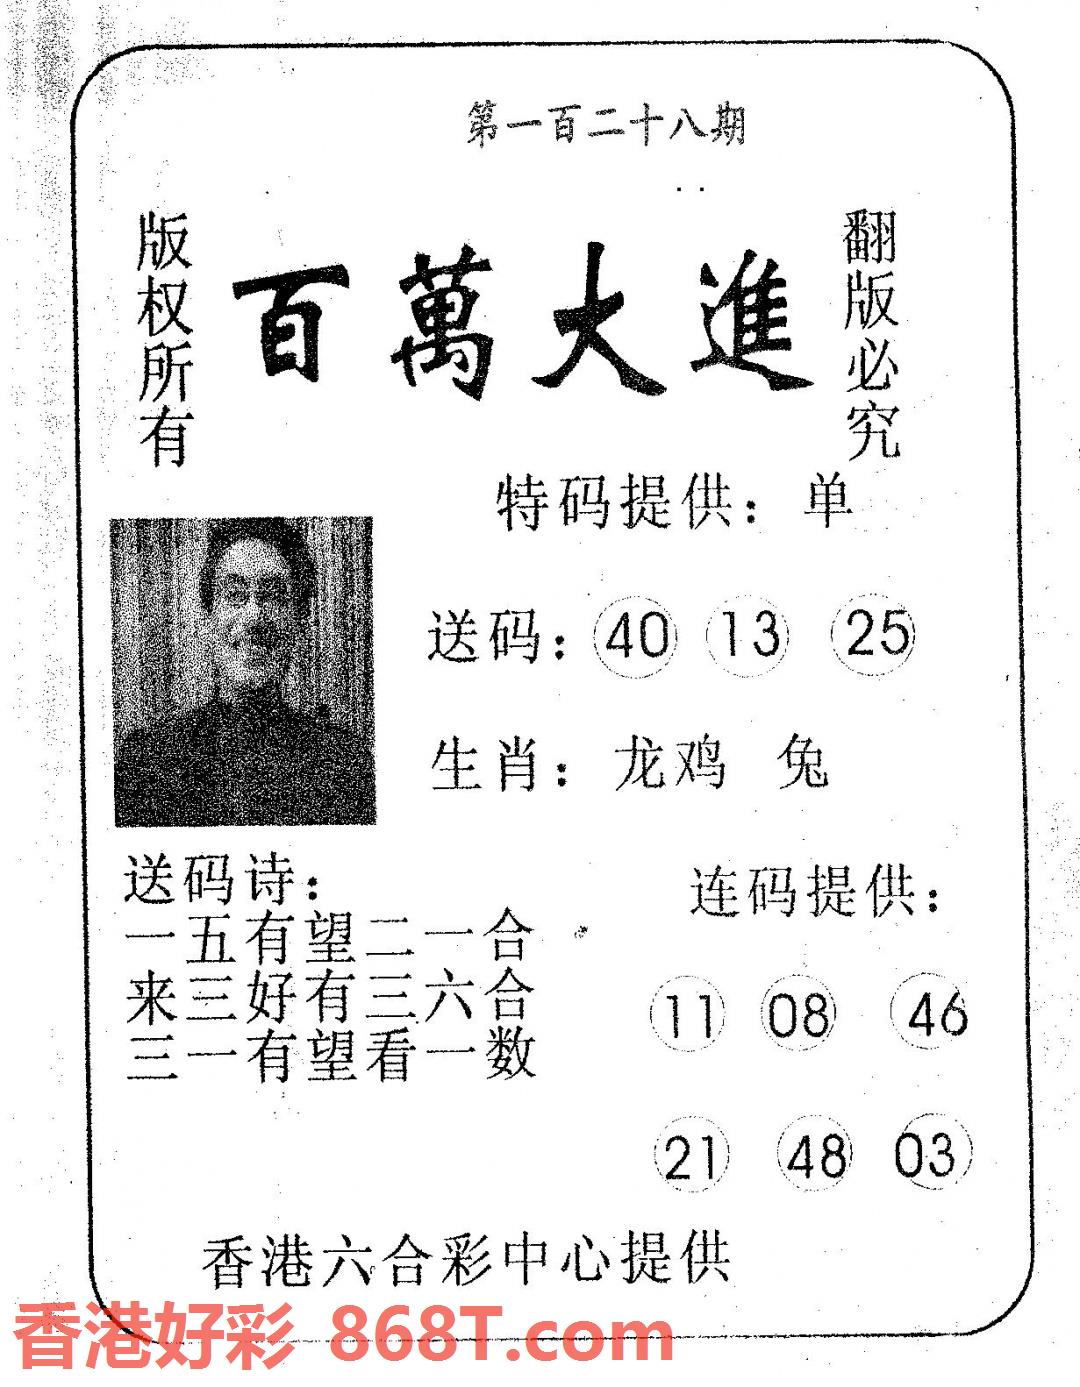 第一百二十八期
版权所有
百萬大進
翻版必究
特码提供：单
送码：40 13 25
生肖：龙鸡 兔
送码诗：
一五有望二一合
来三好有三六合
三一有望看一数
连码提供：
11 08 46
21 48 03
香港六合彩中心提供
香港好彩 868T.com